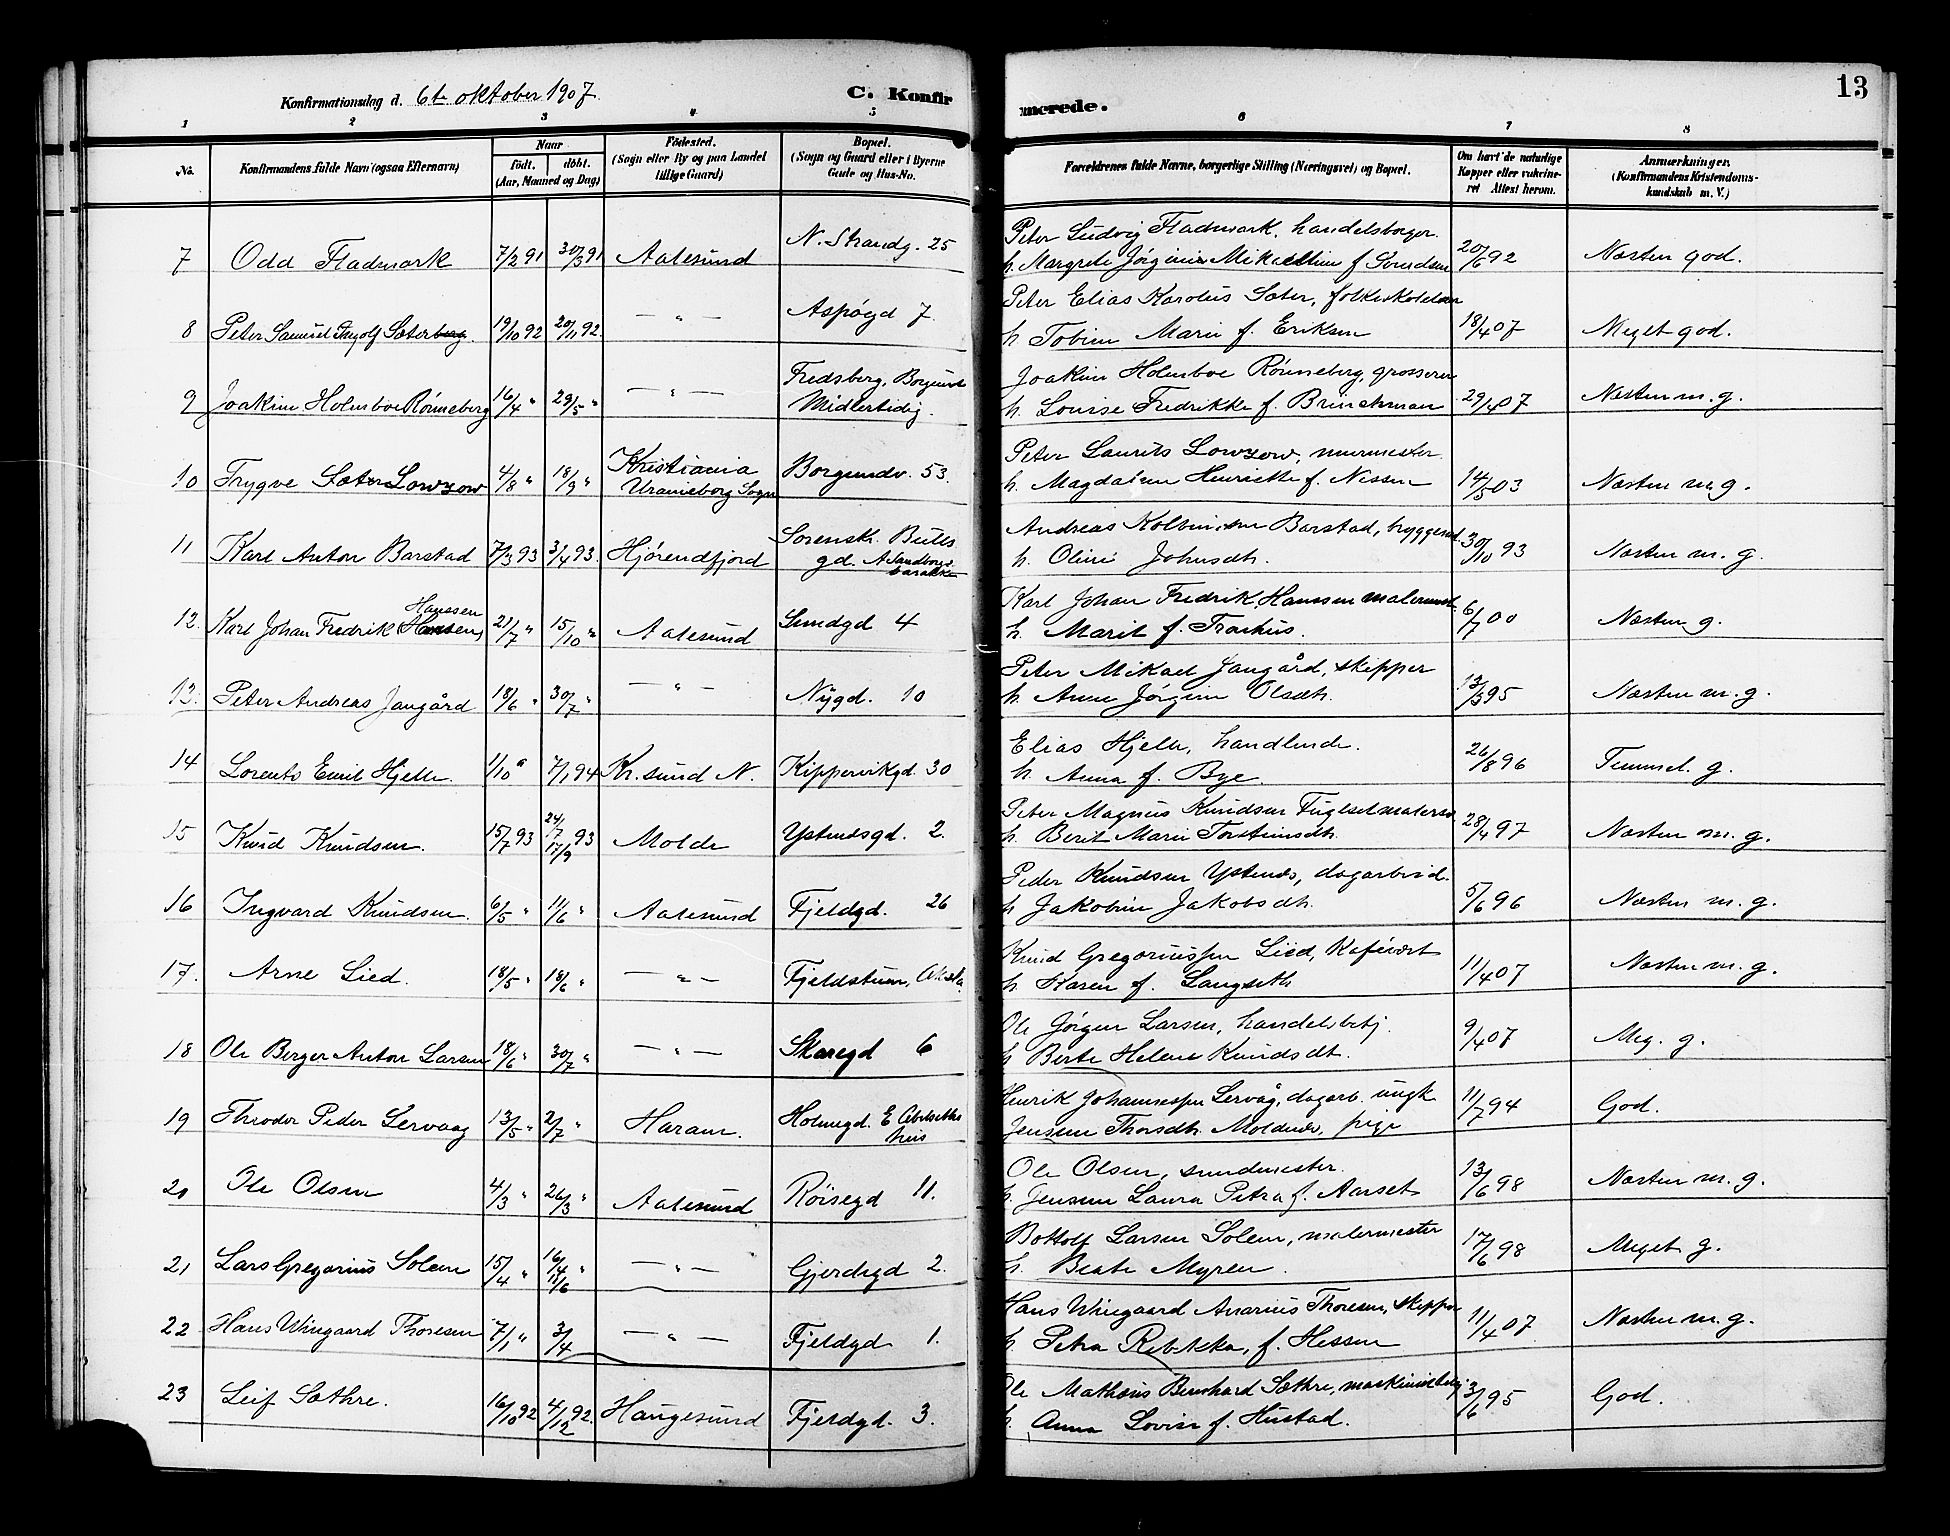 Konfirmationsdag d. 6te oktober 1907.
C. Konfir
merede.
13
1 2 3 4 5 6 7 8
No.
Konfirmandens fulde Navn (ogsaa Efternavn)
Naar
födt. döbt.
(Aar, Maaned og Dag)
Födested.
(Sogn eller By og paa Landet
tillige Gaard)
Bopæl.
(Sogn og Gaard eller i Byerne
Gade og Hus-No.
Forældrenes fulde Navne, borgerlige Stilling (Næringsvei) og Bopæl.
Om havt de naturlige
Kopper eller vakcine-
ret Attest herom.
Anmærkninger.
(Konfirmandens Kristendoms-
kundskab m. V.)
7 Odd Fladmark 7/2 91 30/3 91 Aalesund N. Strandg. 25
Peter Ludvig Fladmark, handelsborger.
h. Margrete Jørgine Mikaeline f. 20/6 92 Næsten god.
8 Peter Samuel Ingolf Sæterberg 19/10 92 20/11 92. — " — Aspøgd 7.
Peter Elias Karolus Sæter,
h. Tobine Marie f. Eriksen 18/4 07 Meget god.
9 Joakim Holmboe Rønneberg 16/4 " 29/5 " — " — Fredsberg, Borgund
Midlertidig.
Joakim Holmboe Rønneberg, grosserer
h. Louise Fredrikke f. Brinchman 29/4 07 Næsten m. g.
10 Trygve Sæter Lowzow 4/8 " 18/9 " Kristiania
Uranieborg Sogn Borgundv. 53.
Peter Laurits Lowzow, murmester
h. Magdalene Henriette f. Nissen 14/5 03 Næsten m. g.
11 Karl Anton Barstad 7/3 93 3/4 93 Hjørendfjord Sorensk. Bulls
gd. A. Sandborgs
barakke
Andreas Kolbeinsen Barstad,
h. Oline Johnsdtr. 30/10 93 Næsten m. g.
12. Karl Johan Fredrik Hansen
Hanssen 21/7 " 15/10 " Aalesund Sundgd 4
Karl Johan Fredrik Hanssen
h. Marit f. 6/7 00 Næsten g.
13. Peter Andreas Jangård 18/6 " 30/7 " — " — Nýgd. 10
Peter Mikael Jangård, skipper
h. Anne Jørgine Olsdtr. 13/3 95 Næsten m. g.
14 Lorents Emil Hjelle. 1/10 " 7/1 94 Kr. sund N. Kippervikgd. 30
Elias Hjelle, handlende.
h. Anna f. Bye. 26/8 96 Temmel. g.
15 Knud Knudsen. 15/7 93 24/7 93
17/9 Molde Ystenesgd. 2.
Peter Magnus Knudsen Fuglset
h. Berit Marie Torsteinsdtr. 28/4 97 Næsten m. g.
16 Ingvard Knudsen. 6/5 " 11/6 " Aalesund Fjeldgd. 26
Peder Knudsen Ystenes, dagarbeid.
h. Jakobine Jakobsdtr. 5/6 96 Næsten m. g.
17. Arne Lied. 18/5 " 18/6 " — " — Fjeldstuen, Aksla.
Knud Gregoriussen Lied, Kaféivært
h. Karen f. Langseth 11/4 07 Næsten m. g.
18 Ole Berger Anton Larsen 18/6 " 30/7 " — " — Skaregd 6
Ole Jørgen Larsen, handelsbetj.
h. Berte Helene Knudsdt. 9/4 07 Meg. g.
19 Theodor Peder Lervaag 13/5 " 2/7 " Haram. Holmegd. E Abelseths
hus
Henrik Johannessen Lervåg, dagarb. ungk
Jensine Thorsdtr. Moldnes, pige 11/7 94 God.
20 Ole Olsen 4/3 " 26/3 " Aalesund Røisegd 11.
Ole Olsen, smedmester.
h. Jensine Laura Petra f. Aarset 13/6 98 Næsten m. g.
21 Lars Gregorius Solem 15/4 " 16/4 "
11/6 — " — Gjerdegd 2.
Bottolf Larsen Solem, malermester
h. Beate Myren. 17/6 98 Meget g.
22 Hans Wingaard Thoresen 7/1 " 3/4 — " — Fjeldgd 1.
Hans Wingaard Anarius Thoresen, skipper
h. Petra Rebekka, f. Hessen 11/4 07 Næsten m. g.
23 Leif Sæthre. 16/10 92 4/12 92. Haugesund Fjeldgd. 3.
Ole Mathæus Bernhard Sæthre,
h. Anna Lovise f. Hustad. 3/6 95 God.